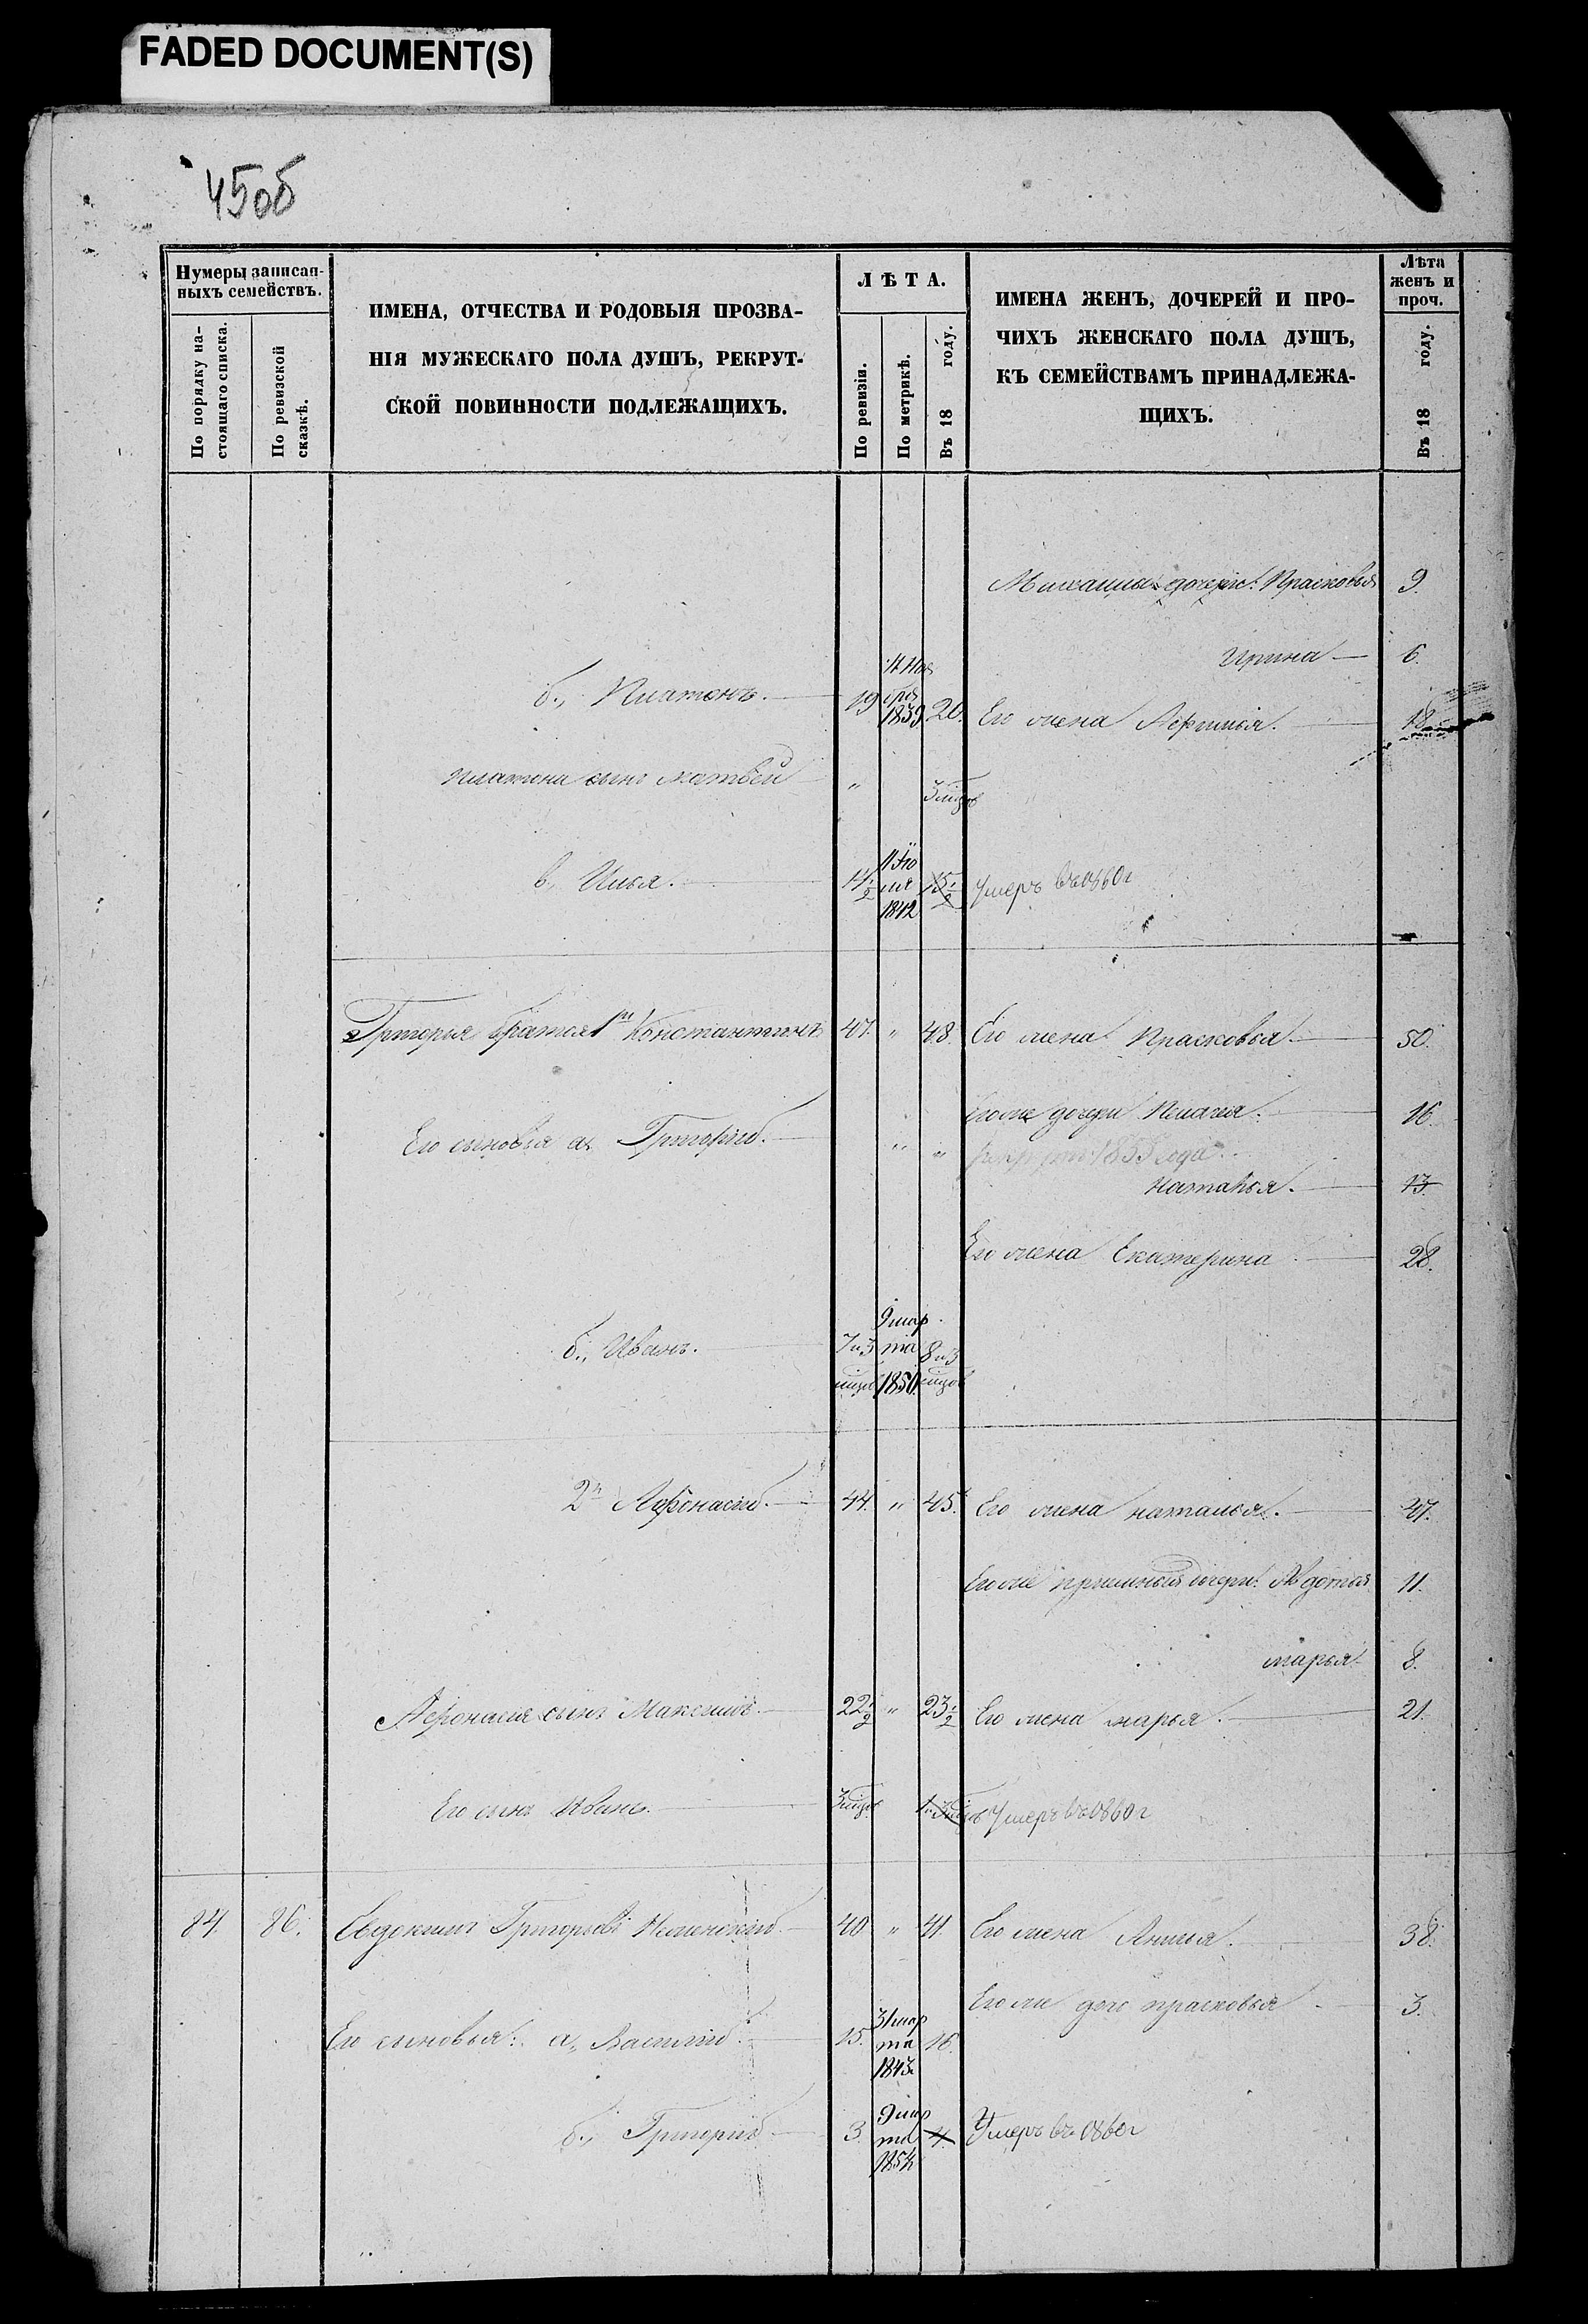 FADED DOCUMENT(S)
45об
Нумеры записан-
ныхъ семействъ.
По порядку на-
стоящаго списка.
По ревизской
сказкѣ.
ИМЕНА, ОТЧЕСТВА И РОДОВЫЯ ПРОЗВА-
НІЯ МУЖЕСКАГО ПОЛА ДУШЪ, РЕКРУТ-
СКОЙ ПОВИННОСТИ ПОДЛЕЖАЩИХЪ.
ЛѢТА.
По ревизіи.
По метрикѣ.
Въ 18 году.
ИМЕНА ЖЕНЪ, ДОЧЕРЕЙ И ПРО-
ЧИХЪ ЖЕНСКАГО ПОЛА ДУШЪ,
КЪ СЕМЕЙСТВАМЪ ПРИНАДЛЕЖА-
ЩИХЪ.
Лѣта
женъ и
проч.
Въ 18 году.
Прасковья 9.
Ирина 6.
б., Платонъ. 19 1839 20. Его жена Афимья. 18.
Платона сынъ Матвѣй " 3 мцов
в., Илья. 14 1/2 11 Ію
ля
1842 15 1/2 Умеръ въ 1860 г
Григорья братья 1й Константинъ 47. " 48. Его жена Прасковья. 50.
Его же дочери Пелагея. 16.
Его сыновья а, Григорій. " " 1855 года
Наталья. 13.
Его жена Екатерина 28.
б., Иванъ. 7 и 3
мцов 9 мар
та
1850. 8 и 3
мцов
2й Афонасій. 44. " 45. Его жена Наталья. 47.
Его же дочери: Авдотья 11.
Марья 8.
Афонасія сынъ Максимъ. 22 1/2 " 23 1/2 Его жена Марья. 21.
Его сынъ Иванъ. 3 мцов 1 и 3 мцов Умеръ въ 1860 г
84. 86. Евдокимъ Григорьевъ 40 " 41. Его жена Анисья. 38.
Его же дочь Прасковья 3.
Его сыновья: а, Василій. 15. 31 мар
та
1843 16.
б., Григорій 3. 9 мар
та
1854 4. Умеръ въ 1860 г